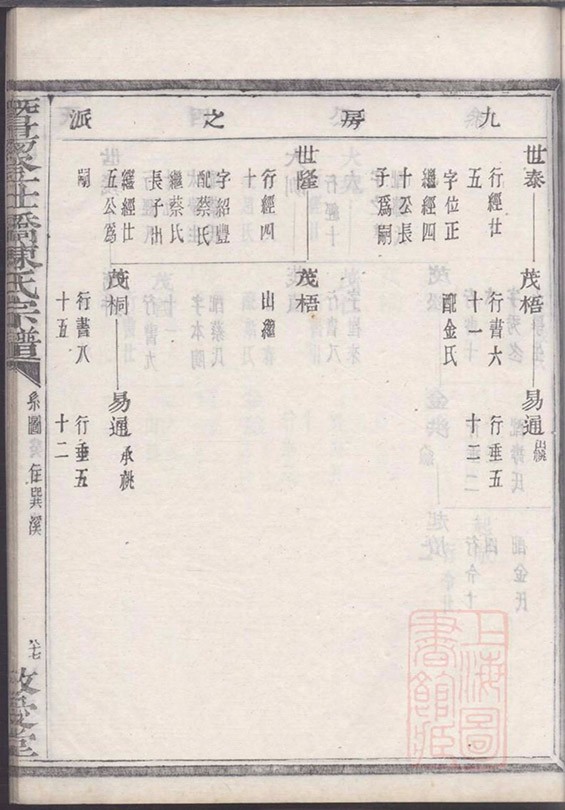 九房之派
世泰
行經廿
五
字位正
繼經四
十公長
子爲嗣
茂梧
行書六
十一
配金氏
易通
出繼
行垂五
十三
世隆
行經四
十
字紹豐
配蔡氏
繼蔡氏
長子出
繼經廿
五公爲
嗣
茂梧
出繼
茂桐
行書八
十五
易通
承祧
行垂五
十二
橋陳氏宗譜
系圖
住巽溪
六七
敬愛堂
上海圖書館藏